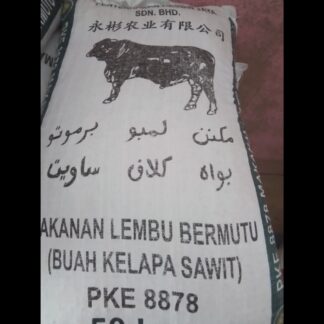 SDN. BHD.
永彬农业有限公司
مکنن لمبو برموتو
بواه کلاڤ ساويت
AKANAN LEMBU BERMUTU
(BUAH KELAPA SAWIT)
PKE 8878
PKE 8878